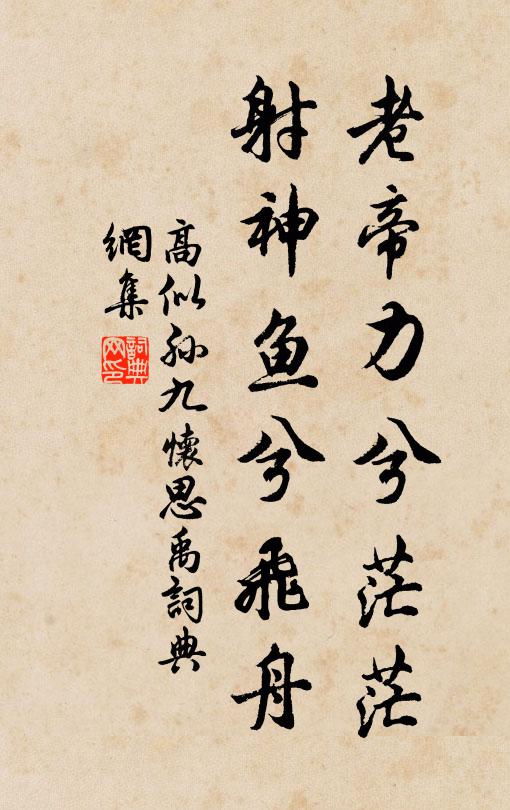 老帝力兮茫茫
射神鱼兮飛舟
高似孙九懷思禹詞典
網集
詞典
网印